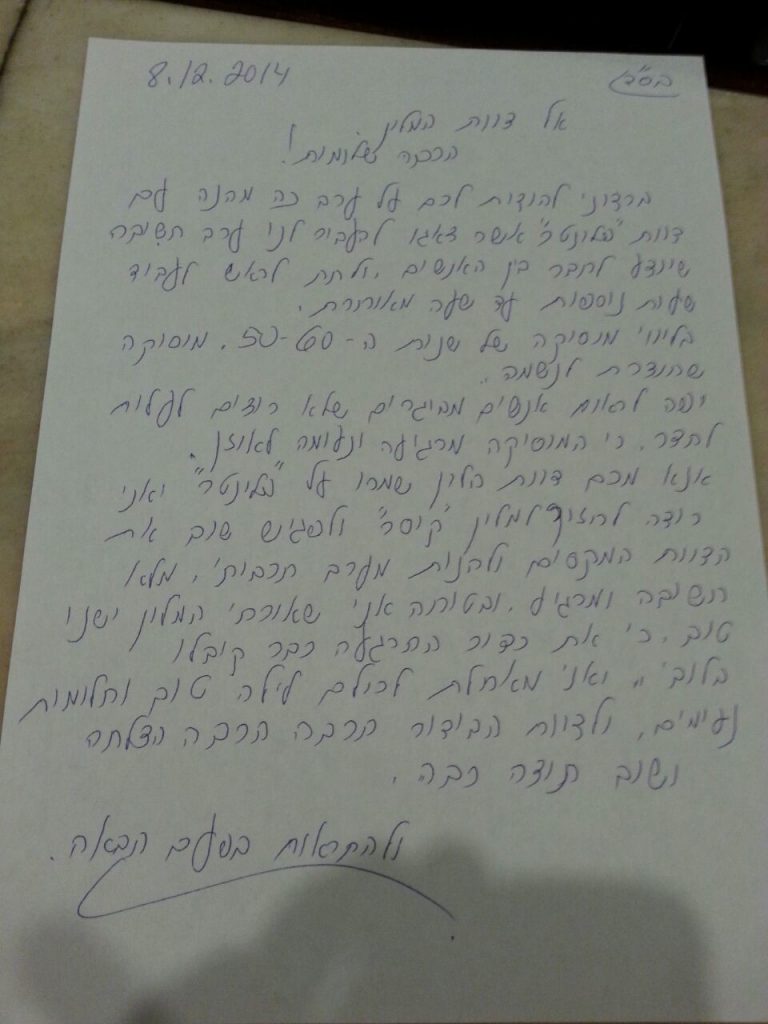 בס"ד
8.12.2014
אל צוות המלון
הרבה שלומות!
ברצוני להודות לכם על ערב כה מהנה עם
צוות אשר דאגו להעביר לנו ערב חשיבה
שיודע לחבר בין האנשים, ולתת לראש לעבוד
שעות נוספות עד שעה מאוחרת.
בליווי מוסיקה של שנות ה-50-60. מוסיקה
שחודרת לנשמה.
יפה לראות אנשים מבוגרים שלא רוצים לעלות
לחדר. כי המוסיקה מרגיעה ונעימה לאוזן.
אנא מכם צוות מלון שמרו על ואני
רוצה לחזור למלון "קיסר" ולפגוש שוב את
הצוות המקסים ולהנות מערב תרבותי, מלא
חשיבה ומרגיע. ובטוחה אני שאורחי המלון ישנו
טוב, כי את כדור ההרגעה כבר קיבלו
בלובי. ואני מאחלת לכולם לילה טוב וחלומות
נעימים, ולצוות הבידור הרבה הרבה הצלחה
ושוב תודה רבה.
ולהתראות בפעם הבאה.